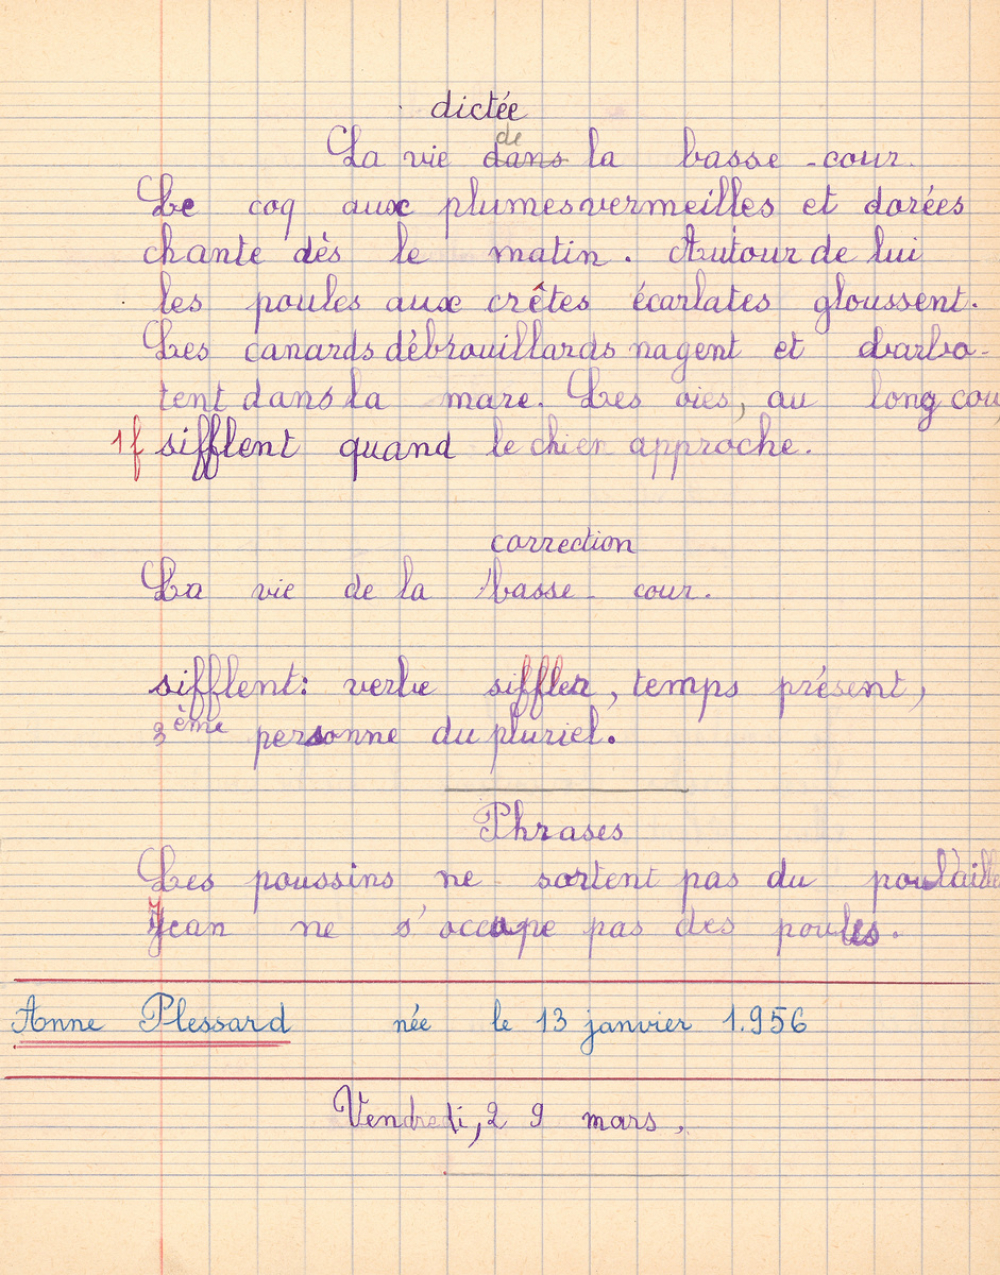 dictée
de
La vie dans la basse-cour.
Le coq aux plumes vermeilles et dorées
chante dès le matin. Autour de lui
les poules aux crêtes écarlates gloussent.
Les canards débrouillards nagent et barbo-
tent dans la mare. Les oies, au long cou,
1f sifflent quand le chien approche.
correction
La vie de la basse-cour.
sifflent: verbe siffler, temps présent,
3ème personne du pluriel.
Phrases
Les poussins ne sortent pas du poulaille
Jean ne s'occupe pas des poules.
Anne Plessard née le 13 janvier 1.956
Vendredi, 29 mars.